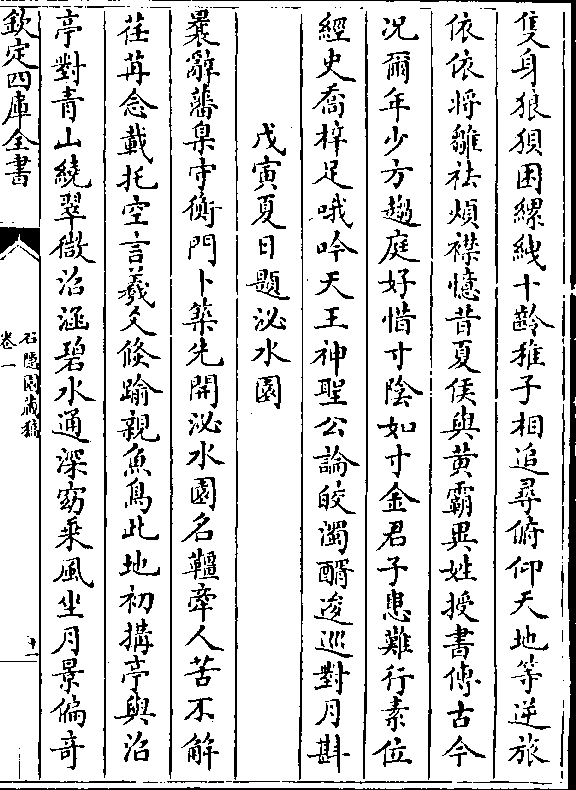 隻身狼狽困縲絏十齡稚子相追尋俯仰天地等逆旅
依依将雛祛煩襟憶昔夏侯與黄霸異姓授書傳古今
况爾年少方趨庭好惜寸陰如寸金君子患難行素位
經史喬梓足哦吟天王神聖公論皎濁醑逡巡對月斟
戊寅夏日題泌水園
曩辭藩臬守衡門卜築先開泌水園名韁牽人苦不解
荏苒念載托空言羲文倐踰親魚鳥此地初搆亭與沼
亭對青山繞翠微沼涵碧水通深窈乗風坐月景偏奇
欽定四庫全書
石隱園藏稿
卷一
十一